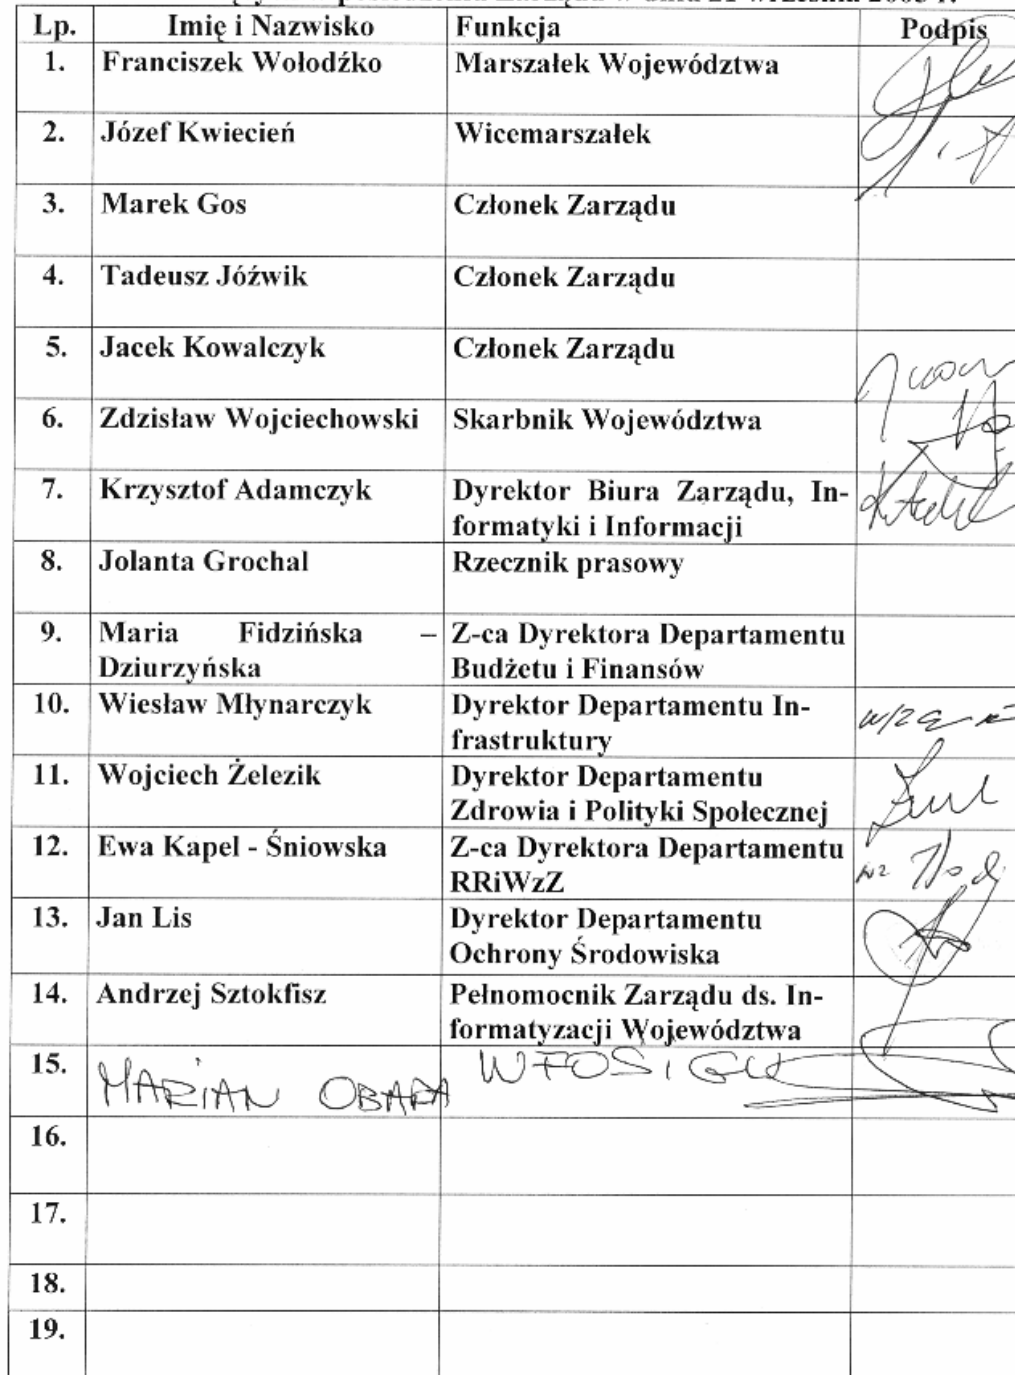 Lp. Imię i Nazwisko Funkcja Podpis
1. Franciszek Wołodźko Marszałek Województwa
2. Józef Kwiecień Wicemarszałek
3. Marek Gos Członek Zarządu
4. Tadeusz Jóźwik Członek Zarządu
5. Jacek Kowalczyk Członek Zarządu
6. Zdzisław Wojciechowski Skarbnik Województwa
7. Krzysztof Adamczyk Dyrektor Biura Zarządu, In-
formatyki i Informacji
8. Jolanta Grochal Rzecznik prasowy
9. Maria Fidzińska – Z-ca Dyrektora Departamentu
Dziurzyńska Budżetu i Finansów
10. Wiesław Młynarczyk Dyrektor Departamentu In-
frastruktury
11. Wojciech Żelezik Dyrektor Departamentu
Zdrowia i Polityki Społecznej
12. Ewa Kapel - Śniowska Z-ca Dyrektora Departamentu
RRiWzZ
13. Jan Lis Dyrektor Departamentu
Ochrony Środowiska
14. Andrzej Sztokfisz Pełnomocnik Zarządu ds. In-
formatyzacji Województwa
15. MARIAN OBARA WFOSiGW
16.
17.
18.
19.